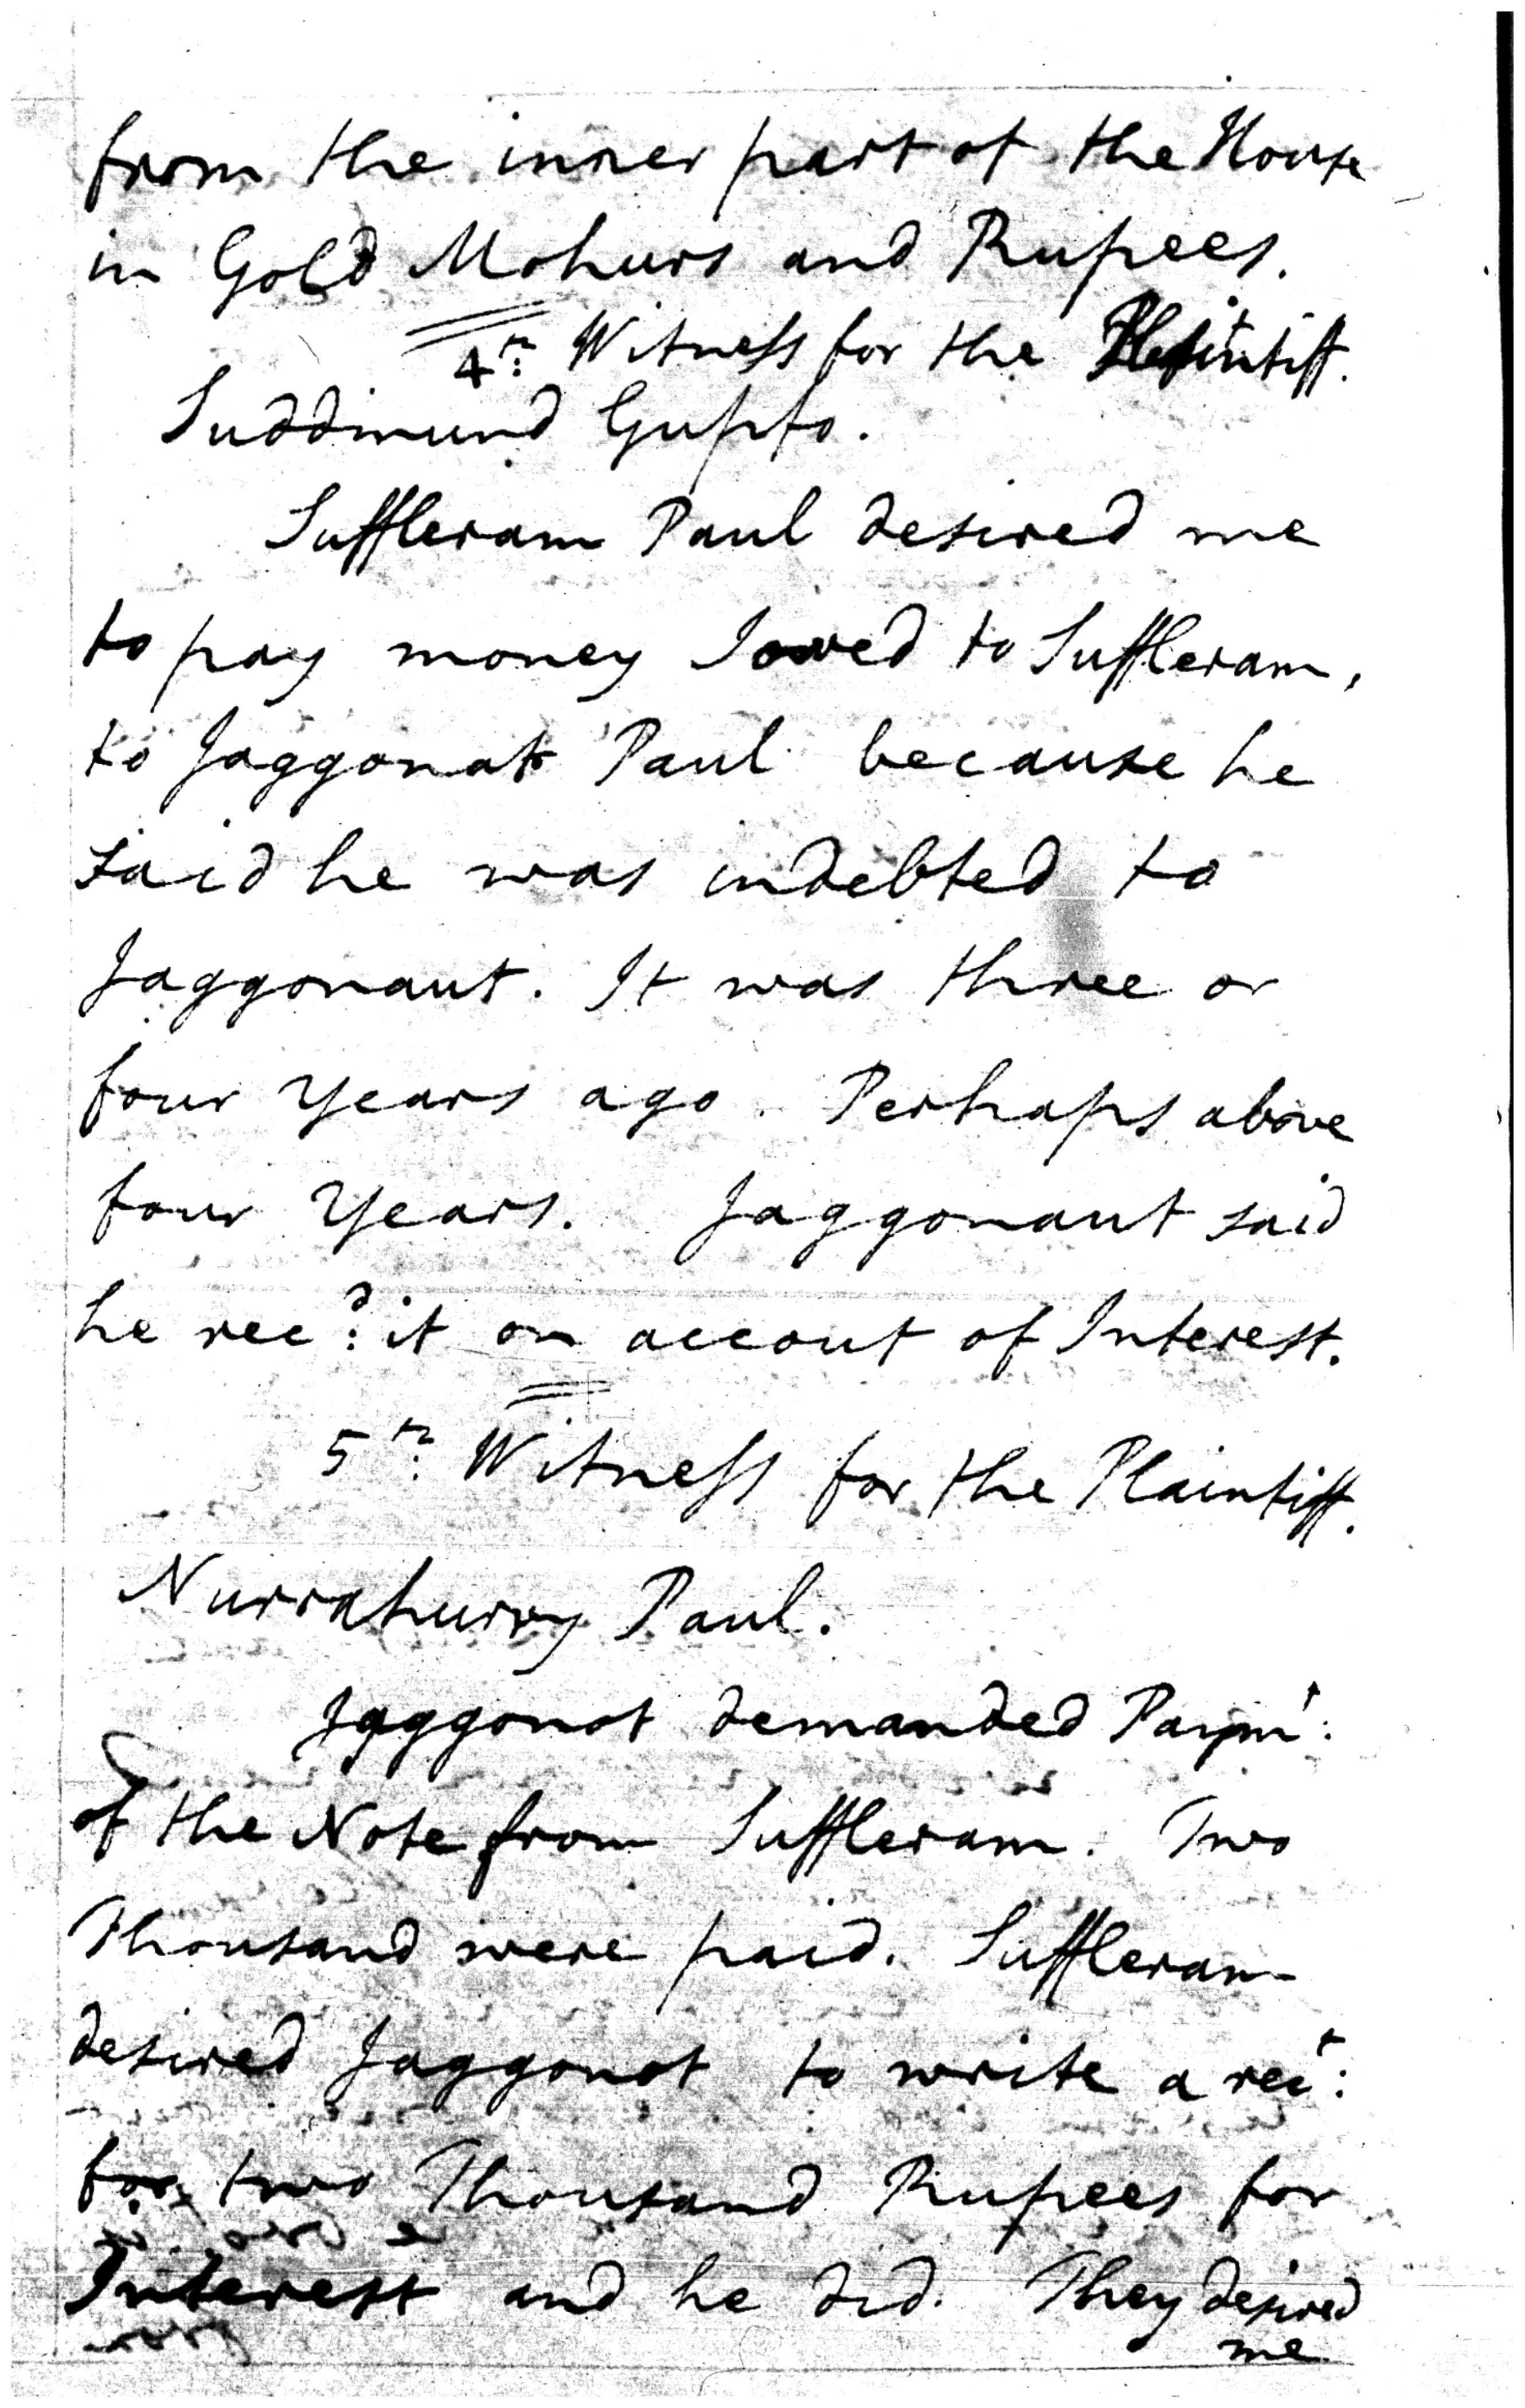 from the inner part of the House
in Gold Mohurs and Rupees.
4th: Witness for the Plaintiff.
Suddmund Gupto.
Suffleram Paul desired me
to pay money I owed to Suffleram,
to Jaggonat Paul because he
said he was indebted to
Jaggonaut. It was three or
four Years ago. Perhaps above
four Years. Jaggonaut said
he recd: it on accout of Interest.
5th: Witness for the Plaintiff.
Nurrahurry Paul.
Jaggonot demanded Paymt:
of the Note from Suffleram. Two
Thousand were paid. Suffleram
desired Jaggonot to write a rect:
for two Thousand Rupees for
Interest and he did. They desired
me